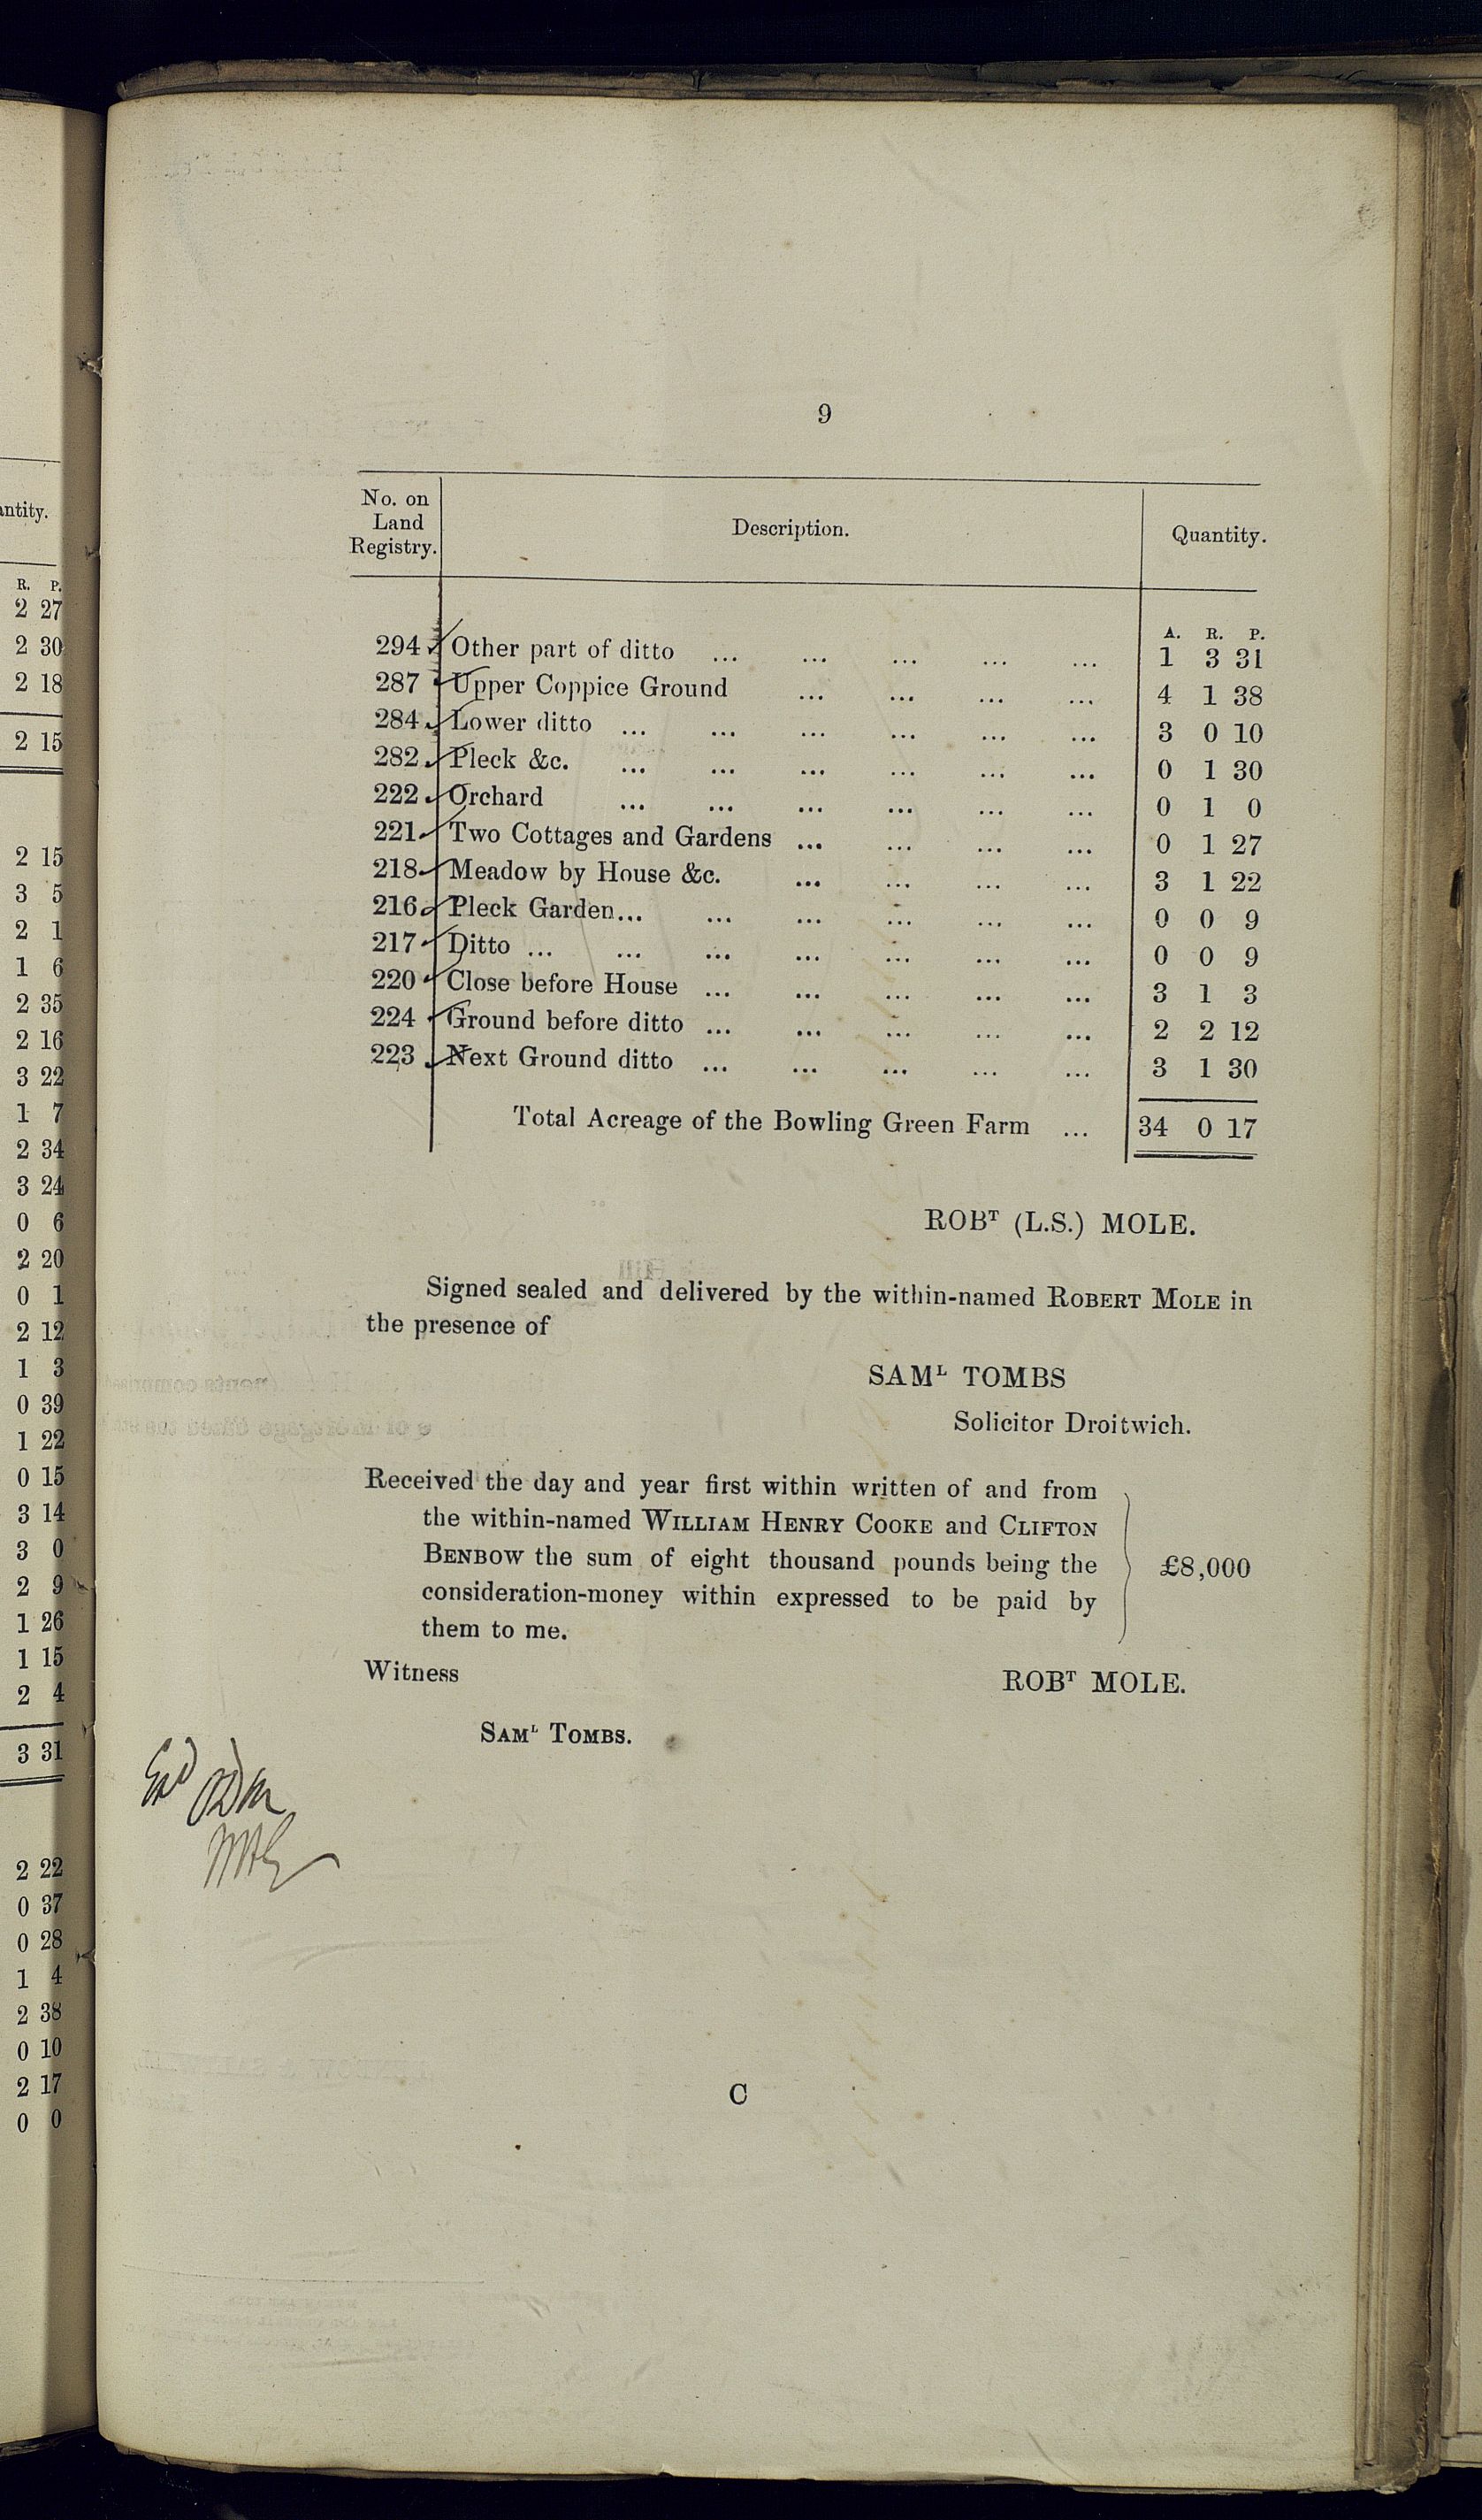 antity.
R. P.
2 27
2 30
2 18
2 15
2 15
3 5
2 1
1 6
2 35
2 16
3 22
1 7
2 34
3 24
0 6
2 20
0 1
2 12
1 3
0 39
1 22
0 15
3 14
3 0
2 9
1 26
1 15
2 4
3 31
2 22
0 37
0 28
1 4
2 38
0 10
2 17
0 0
9
No. on Land Registry. Description. Quantity.
A. R. P.
294 Other part of ditto ... ... ... ... ... 1 3 31
287 Upper Coppice Ground ... ... ... ... 4 1 38
284 Lower ditto ... ... ... ... ... ... 3 0 10
282 Pleck &c. ... ... ... ... ... ... 0 1 30
222 Orchard ... ... ... ... ... ... 0 1 0
221 Two Cottages and Gardens ... ... ... ... 0 1 27
218 Meadow by House &c. ... ... ... ... 3 1 22
216 Pleck Garden... ... ... ... ... ... 0 0 9
217 Ditto ... ... ... ... ... ... ... 0 0 9
220 Close before House ... ... ... ... ... 3 1 3
224 Ground before ditto ... ... ... ... ... 2 2 12
223 Next Ground ditto ... ... ... ... ... 3 1 30
Total Acreage of the Bowling Green Farm ... 34 0 17
ROBT (L.S.) MOLE.
Signed sealed and delivered by the within-named ROBERT MOLE in
the presence of
SAML TOMBS
Solicitor Droitwich.
Received the day and year first within written of and from
the within-named WILLIAM HENRY COOKE and CLIFTON
BENBOW the sum of eight thousand pounds being the
consideration-money within expressed to be paid by
them to me.
£8,000
Witness
ROBT MOLE.
SAML TOMBS.
C